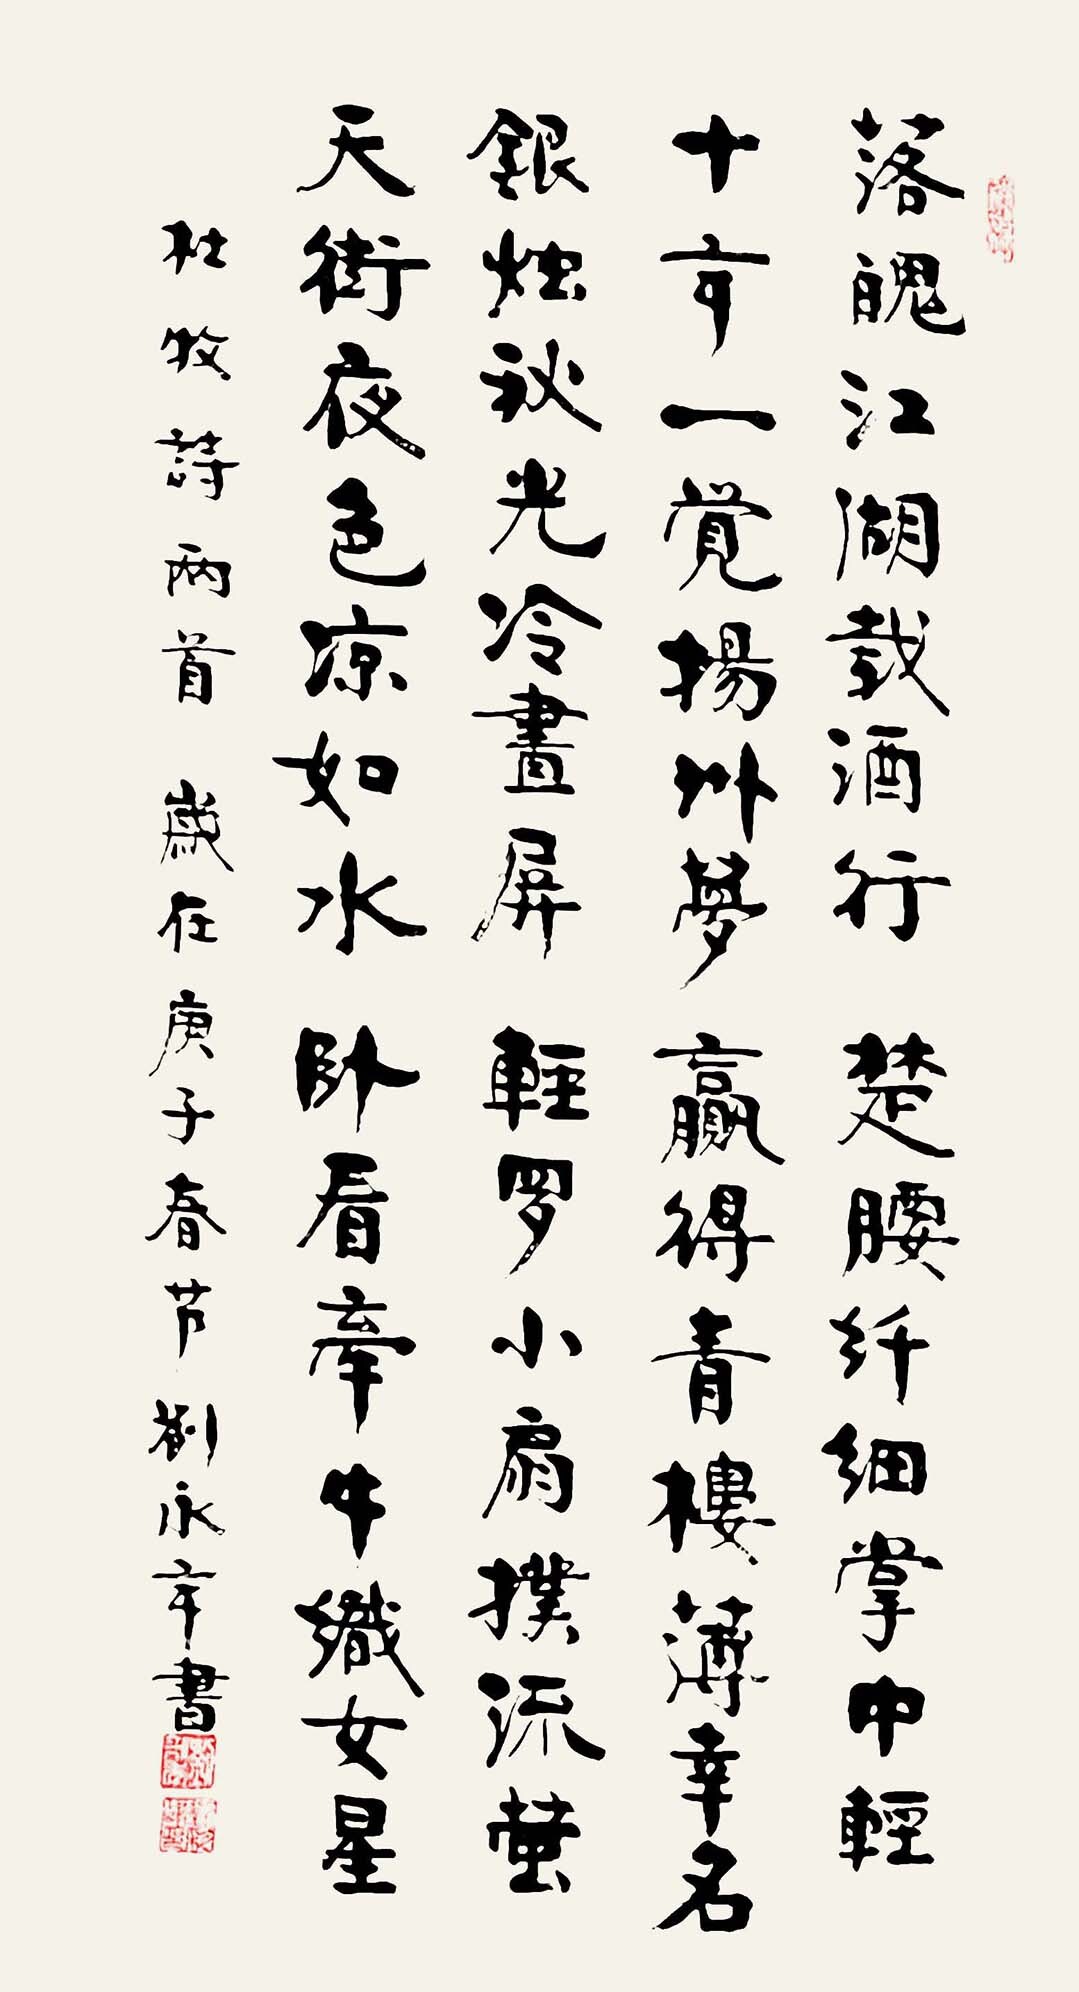 落魄江湖载酒行 楚腰纤细掌中輕
十年一覚揚州夢 贏得青樓薄幸名
銀烛秋光冷畫屏 輕罗小扇撲流萤
天街夜色凉如水 卧看牽牛織女星
杜牧詩两首 歲在庚子春节 劉永年書